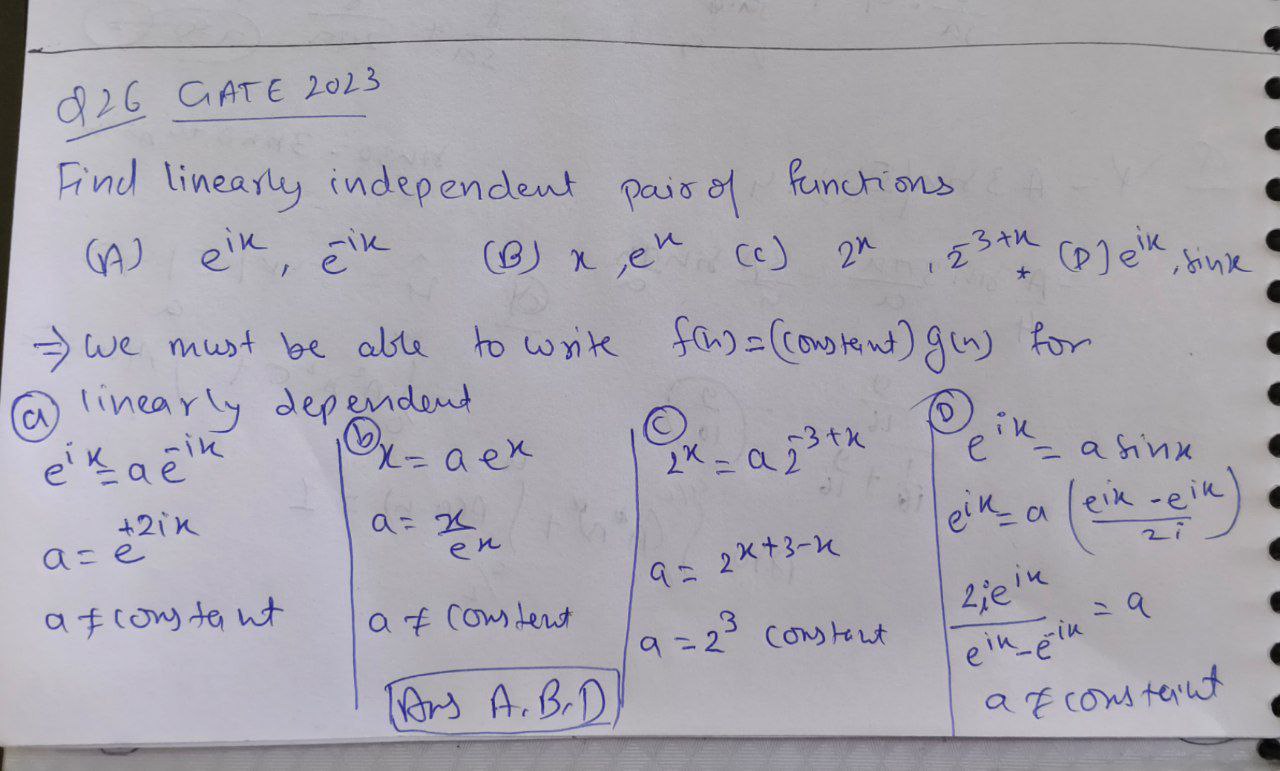 Q26 GATE 2023
Find linearly independent pair of functions
(A) e^{ix}, e^{-ix} (B) x, e^x (C) 2^x, 2^{-3+x} * (D) e^{ix}, sinx
⇒ We must be able to write f(x)=(constant) g(x) for
linearly dependent
ⓐ
e^{ix} = a e^{-ix}
a = e^{+2ix}
a ≠ constant
ⓑ
x = a e^x
a = x/e^x
a ≠ constent
ⓒ
2^x = a 2^{-3+x}
a = 2^{x+3-x}
a = 2^3 constant
Ⓓ
e^{ix} = a sinx
e^{ix} = a (e^{ix} - e^{-ix}/2i)
2ie^{ix}/e^{ix} - e^{-ix} = a
a ≠ constaint
Ans A, B, D